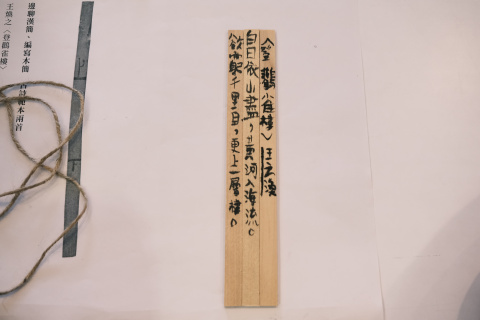 〈登鸛雀樓〉
白日依山盡，黃河入海流。
欲窮千里目，更上一層樓。
邊聊漢簡、編寫木簡 古詩範本兩首
王煥之〈登鸛雀樓〉